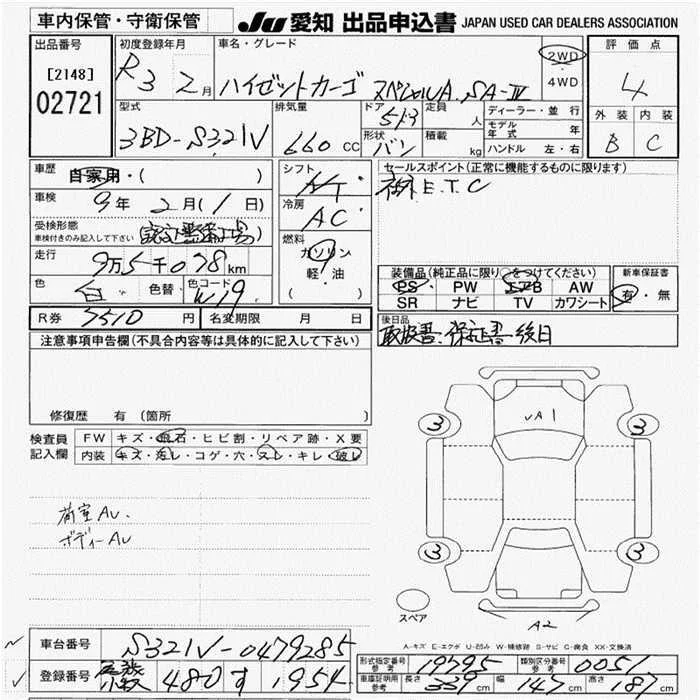 車内保管・守衛保管 JU 愛知 出品申込書 JAPAN USED CAR DEALERS ASSOCIATION
出品番号 初度登録年月 車名・グレード 評価点
[2148] R3 2月 ハイゼットカーゴ スペシャルSA-Ⅳ 2WD 4WD 4
02721 外装 内装
型式 排気量 ドア 定員 ディーラー・並行
3BD-S321V 660 CC 5 人 モデル年式 年 B C
形状 バン 積載 kg ハンドル 左・右
車歴 自家用・( ) シフト AT セールスポイント(正常に機能するものに限ります)
車検 9年 2月(1日) 冷房 AC E.T.C
受検形態 車検付きのみ記入して下さい
走行 9万5千078km 燃料 ガソリン 軽・油 ( )
装備品(純正品に限り○をつけてください) 新車保証書
色 白 色替・色コード W19 PS・PW エアB AW 有・無
SR ナビ TV カワシート
R券 7510円 名変期限 月 日 後日品
取扱書・保証書 後日
注意事項申告欄(不具合内容等は具体的に記入して下さい)
修復歴 有(箇所 )
検査員記入欄 FW キズ・飛石・ヒビ割・リペア跡・X要
内装 キズ・汚レ・コゲ・穴・スレ・キレ・破レ
VA1
3 3
荷室AU.
ボディーAU
3 3
スペア
A2
A-キズ E-エクボ U-凹み W-補修跡 S-サビ C-腐食 XX-交換済
車台番号 S321V-0479285
形式指定番号 参考 19795 類別区分番号 参考 0051
登録番号 480 す 954
車庫証明用 参考 長さ 339cm 幅 147cm 高さ 187cm